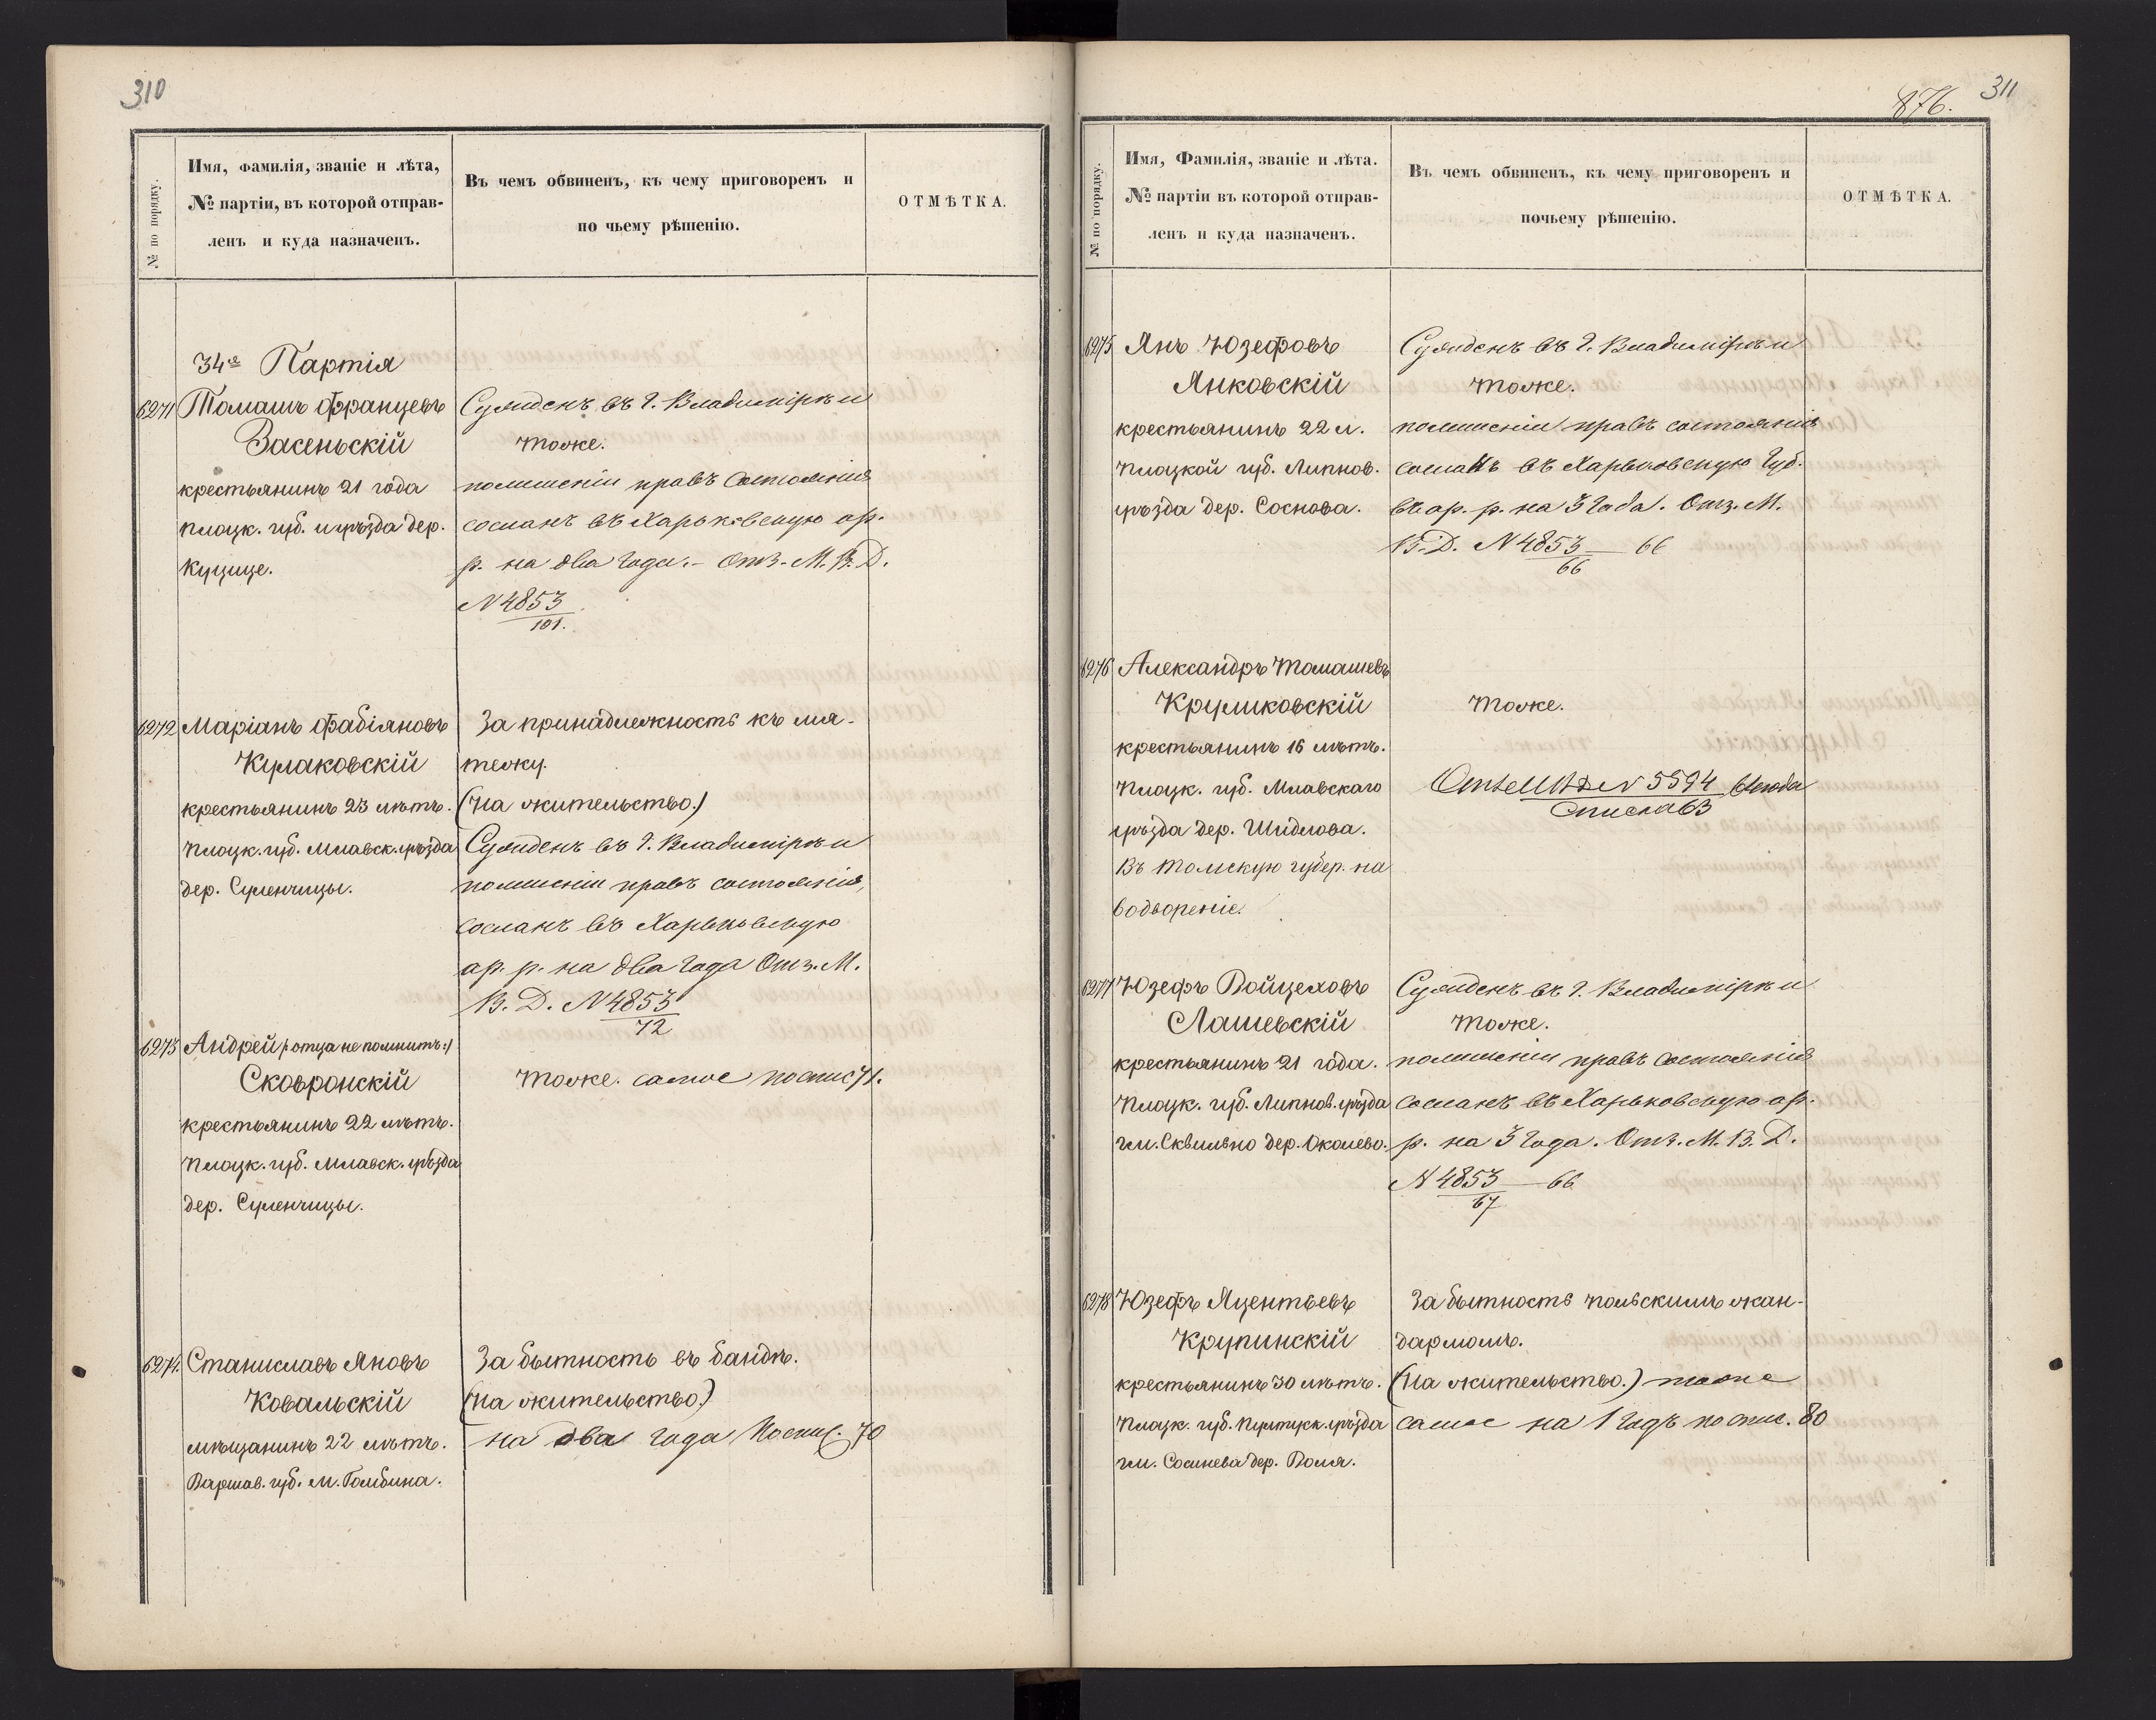 310
№ по порядку.
Имя, фамилія, званіе и лѣта,
№ партіи, въ которой отправ-
ленъ и куда назначенъ.
Въ чемъ обвиненъ, къ чему приговоренъ и
по чьему рѣшенію.
ОТМѢТКА.
34я Партія
6271
Томашъ Францевъ
Засеньскій
крестьянинъ 21 года
плоцк. губ. и уѣзда дер.
Куцице.
Сужденъ въ г. Владимірѣ и
тоже.
по лишеніи правъ состоянія
сосланъ въ Харьковскую ар.
р. на два года. - Отз. М. В. Д.
N 4853
101.
6272
Маріанъ Фабіановъ
Кулаковскій
крестьянинъ 23 лѣтъ.
Плоцк. губ. Млавск. уѣзда
дер. Суленчицы.
За принадлежность къ мя-
тежу.
(На жительство.)
Сужденъ въ г. Владимірѣ и
по лишеніи правъ состоянія,
сосланъ въ Харьковскую
ар. р. на два года Отз. М.
В. Д. N 4853
72
6273
Андрей /:отца не помнитъ:/
Сковронскій
крестьянинъ 22 лѣтъ.
Плоцк. губ. Млавск. уѣзда
дер. Суленчицы.
тоже. самое по спис 71.
6274.
Станиславъ Яновъ
Ковальскій
мѣщанинъ 22 лѣтъ.
Варшав. губ. м. Гомбина.
За бытность въ бандѣ.
(На жительство)
на два года По спис. 70
311
876.
№ по порядку.
Имя, Фамилія, званіе и лѣта.
№ партіи въ которой отправ-
ленъ и куда назначенъ.
Въ чемъ обвиненъ, къ чему приговоренъ и
почьему рѣшенію.
ОТМѢТКА.
6275
Янъ Юзефовъ
Янковскій
крестьянинъ 22 л.
Плоцкой губ. Липнов.
уѣзда дер. Соснова.
Сужденъ въ г. Владимірѣ и
тоже.
по лишеніи правъ состоянія
сосланъ въ Харьковскую Губ.
въ ар. р. на 3 года. Отз. М.
В. Д. N 4853 — 66
66
6276
Александръ Томашевъ
Круликовскій
крестьянинъ 16 лѣтъ.
Плоцк. губ. Млавскаго
уѣзда дер. Шидлова.
Въ Томскую губер. на
водвореніе.
тоже.
N 5594
63
6277
Юзефъ Войцеховъ
Лашевскій
крестьянинъ 21 года.
Плоцк. губ. Липнов. уѣзда
гм. Сквильно дер. Околево.
Сужденъ въ г. Владимірѣ и
тоже.
по лишеніи правъ состоянія
сосланъ въ Харьковскую ар.
р. на 3 года. Отз. М. В. Д.
N 4853 — 66
67
6278
Юзефъ Яцентьевъ
Крупинскій
крестьянинъ 30 лѣтъ.
Плоцк. губ. Пултуск. уѣзда
гм. Сосинева дер. Воля.
За бытность польскимъ жан-
дармомъ.
(На жительство.) тоже
самое на 1 годъ по спис. 80